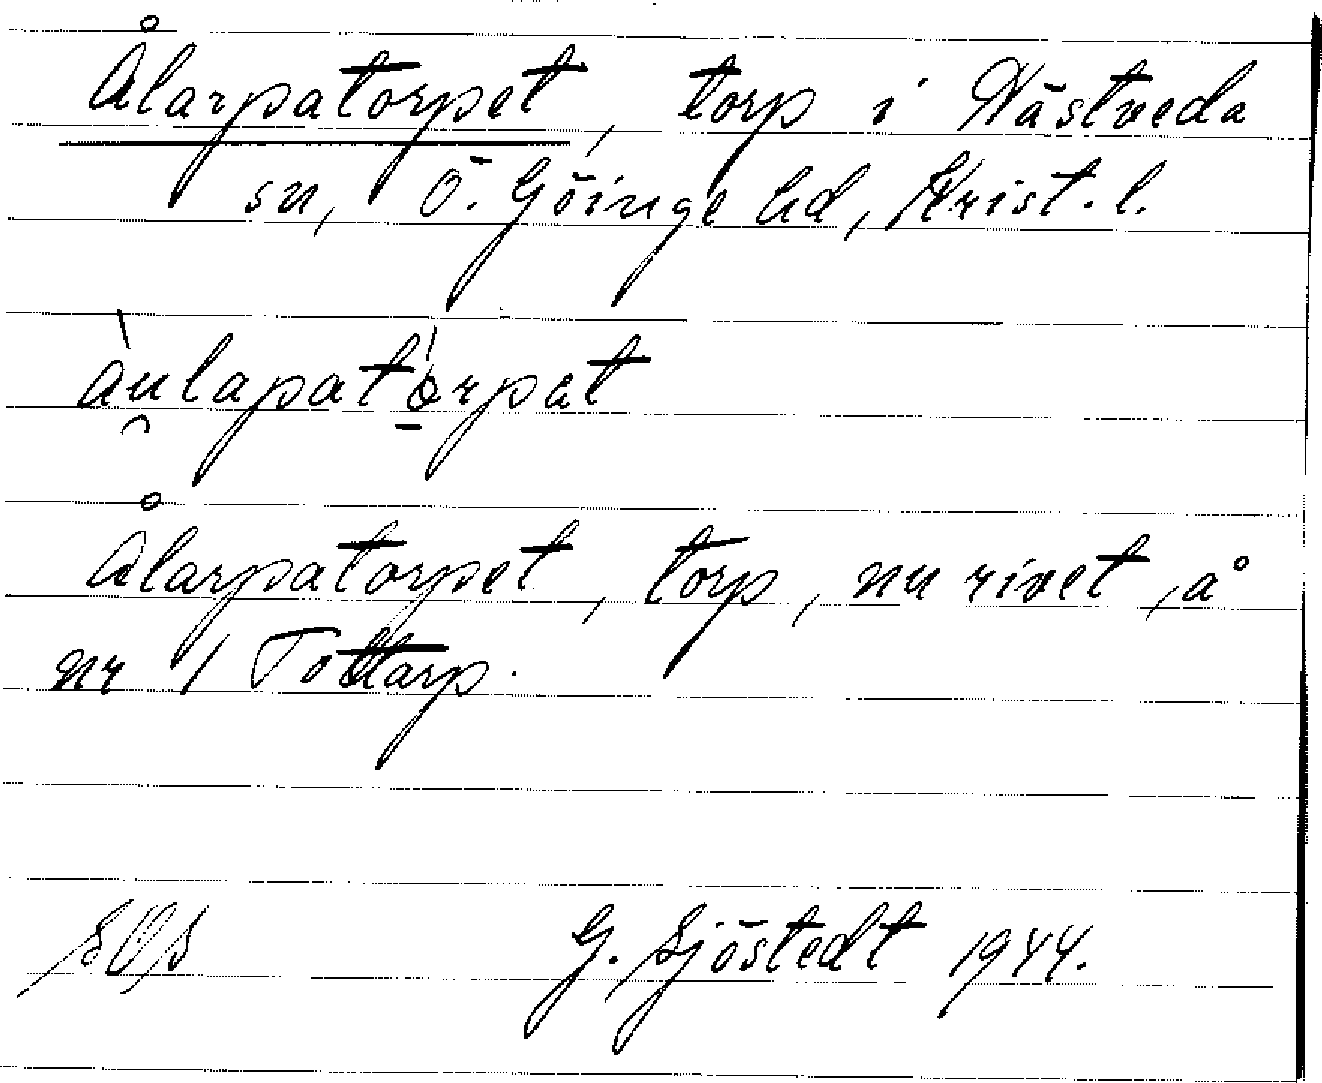 Ålarpatorpet, torp i Nästveda
sn, Ö. Göinge hd, Krist. l.
àu̯lapatò̱rpat
Ålarpatorpet, torp, nu rivet, å
nr 1 Tottarp.
G. Sjöstedt 1944.